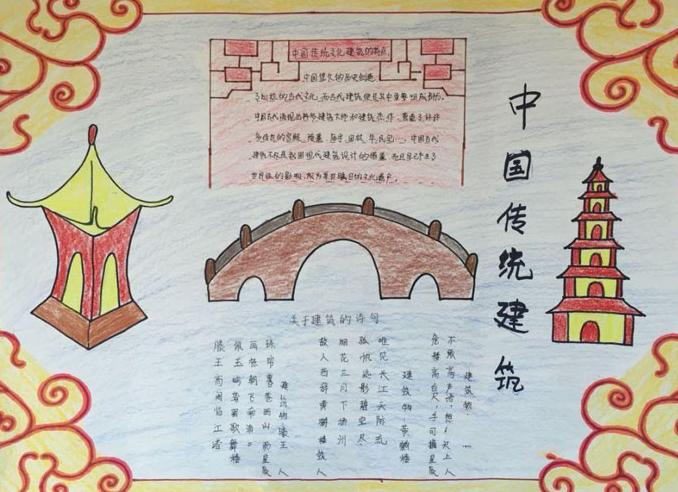 中国传统建筑
中国传统文化建筑的特点
中国悠久的历史创造
了灿烂的古代文化,而古代建筑便是其中重要组成部分。
中国古代涌现出许多建筑大师和建筑杰作,营造了许许
多传世的宫殿、陵墓、庙宇、园林、民宅…中国古代
建筑不仅是我国现代建筑设计的借鉴,而且早已产生了
世界性的影响,成为举世瞩目的文化遗产。
关于建筑的诗句
建筑物:
不敢高声语,恐天上人
危楼高百尺,手可摘星辰
建筑物:黄鹤楼
唯见长江天际流
孤帆远影碧空尽
烟花三月下扬州
故人西辞黄鹤楼故人
建筑物滕王
珠帘暮卷西山雨
画栋朝飞南浦
佩玉鸣鸾罢歌舞
滕王高阁临江渚